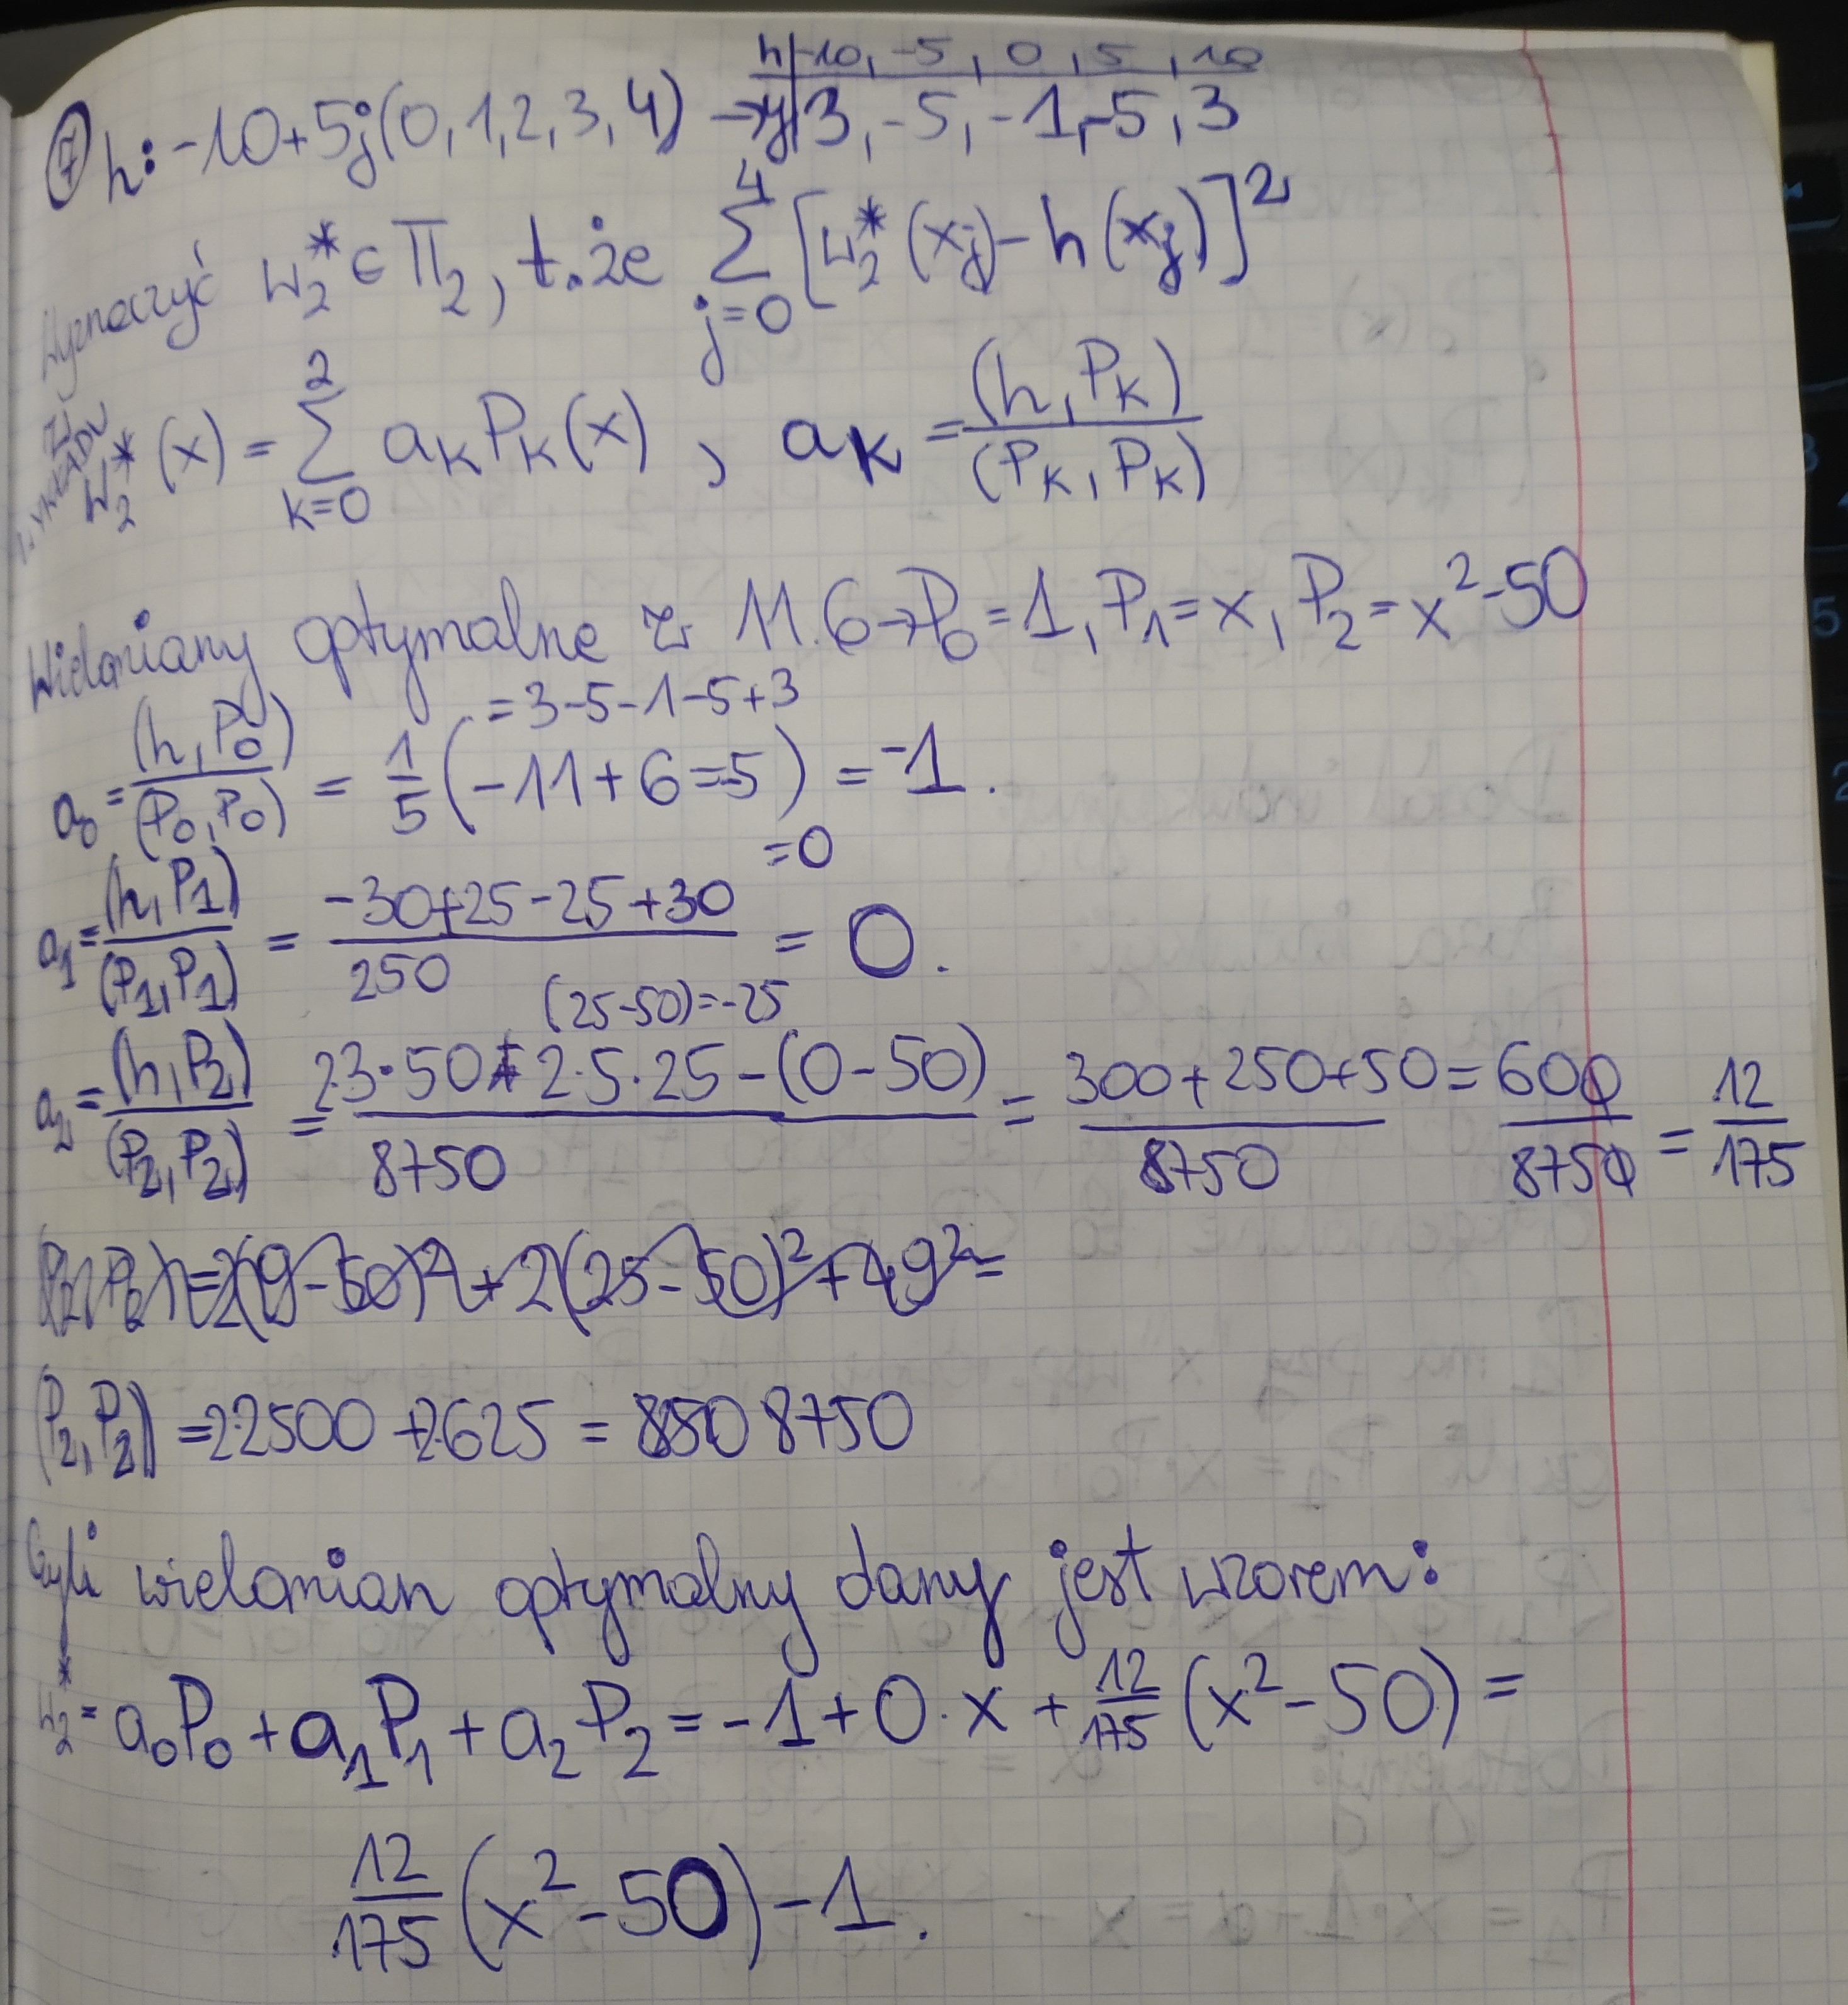 h | -10, -5, 0, 5, 10
⑦ h: -10+5j(0,1,2,3,4) → y | 3, -5, -1, -5, 3
Wyznaczyć w₂* ∈ Π₂, t.że ∑_{j=0}^{4} [w₂*(xj) - h(xj)]²
w₂*(x) = ∑_{k=0}^{2} aₖPₖ(x), aₖ = (h,Pₖ)/(Pₖ,Pₖ)
Wielomiany optymalne z 11.6 → P₀=1, P₁=x, P₂=x²-50
= 3-5-1-5+3
a₀ = (h,P₀)/(P₀,P₀) = 1/5 (-11+6=-5) = -1.
=0
a₁ = (h,P₁)/(P₁,P₁) = (-30+25-25+30)/250 = 0.
(25-50)=-25
a₂ = (h,P₂)/(P₂,P₂) = (2·3·50+2·5·25-(0-50))/8750 = (300+250+50)/8750 = 600/8750 = 12/175
(P₂,P₂) = 2(9-50)²+2(25-50)²+49²=
(P₂,P₂) = 2·2500+2·625 = 850 8750
Czyli wielomian optymalny dany jest wzorem:
w₂* = a₀P₀+a₁P₁+a₂P₂ = -1+0·x+12/175(x²-50) =
12/175(x²-50)-1.